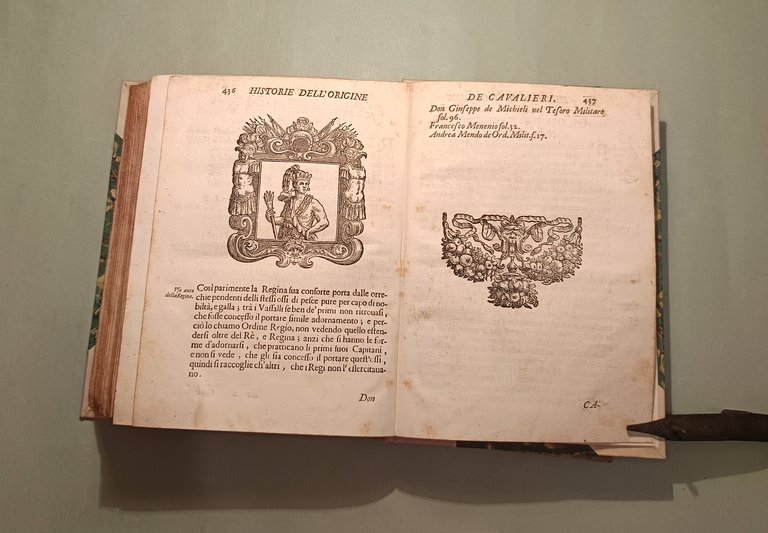 436 HISTORIE DELL'ORIGINE
Uso anco
della Regina.
Così parimente la Regina sua consorte porta dalle orec-
chie pendenti delli stessi ossi di pesce pure per capo di no-
biltà, e gala; trà i Vassalli se ben de' primi non ritrouasi,
che fosse concesso il portare simile adornamento; e per-
ciò lo chiamo Ordine Regio, non vedendo quello esten-
dersi oltre del Rè, e Regina; anzi che si hanno le for-
me d'adornarsi, che pratticano li primi suoi Capitani,
e non si vede, che gli sia concesso il portare quest'ossi,
quindi si raccoglie ch'altri, che i Regi non l'esercitaua-
no.
Don
DE CAVALIERI. 437
Don Giuseppe de Michieli nel Tesoro Militare,
fol. 96.
Francesco Menenio fol. 32.
Andrea Mendo de Ord. Milit. f. 17.
CA-